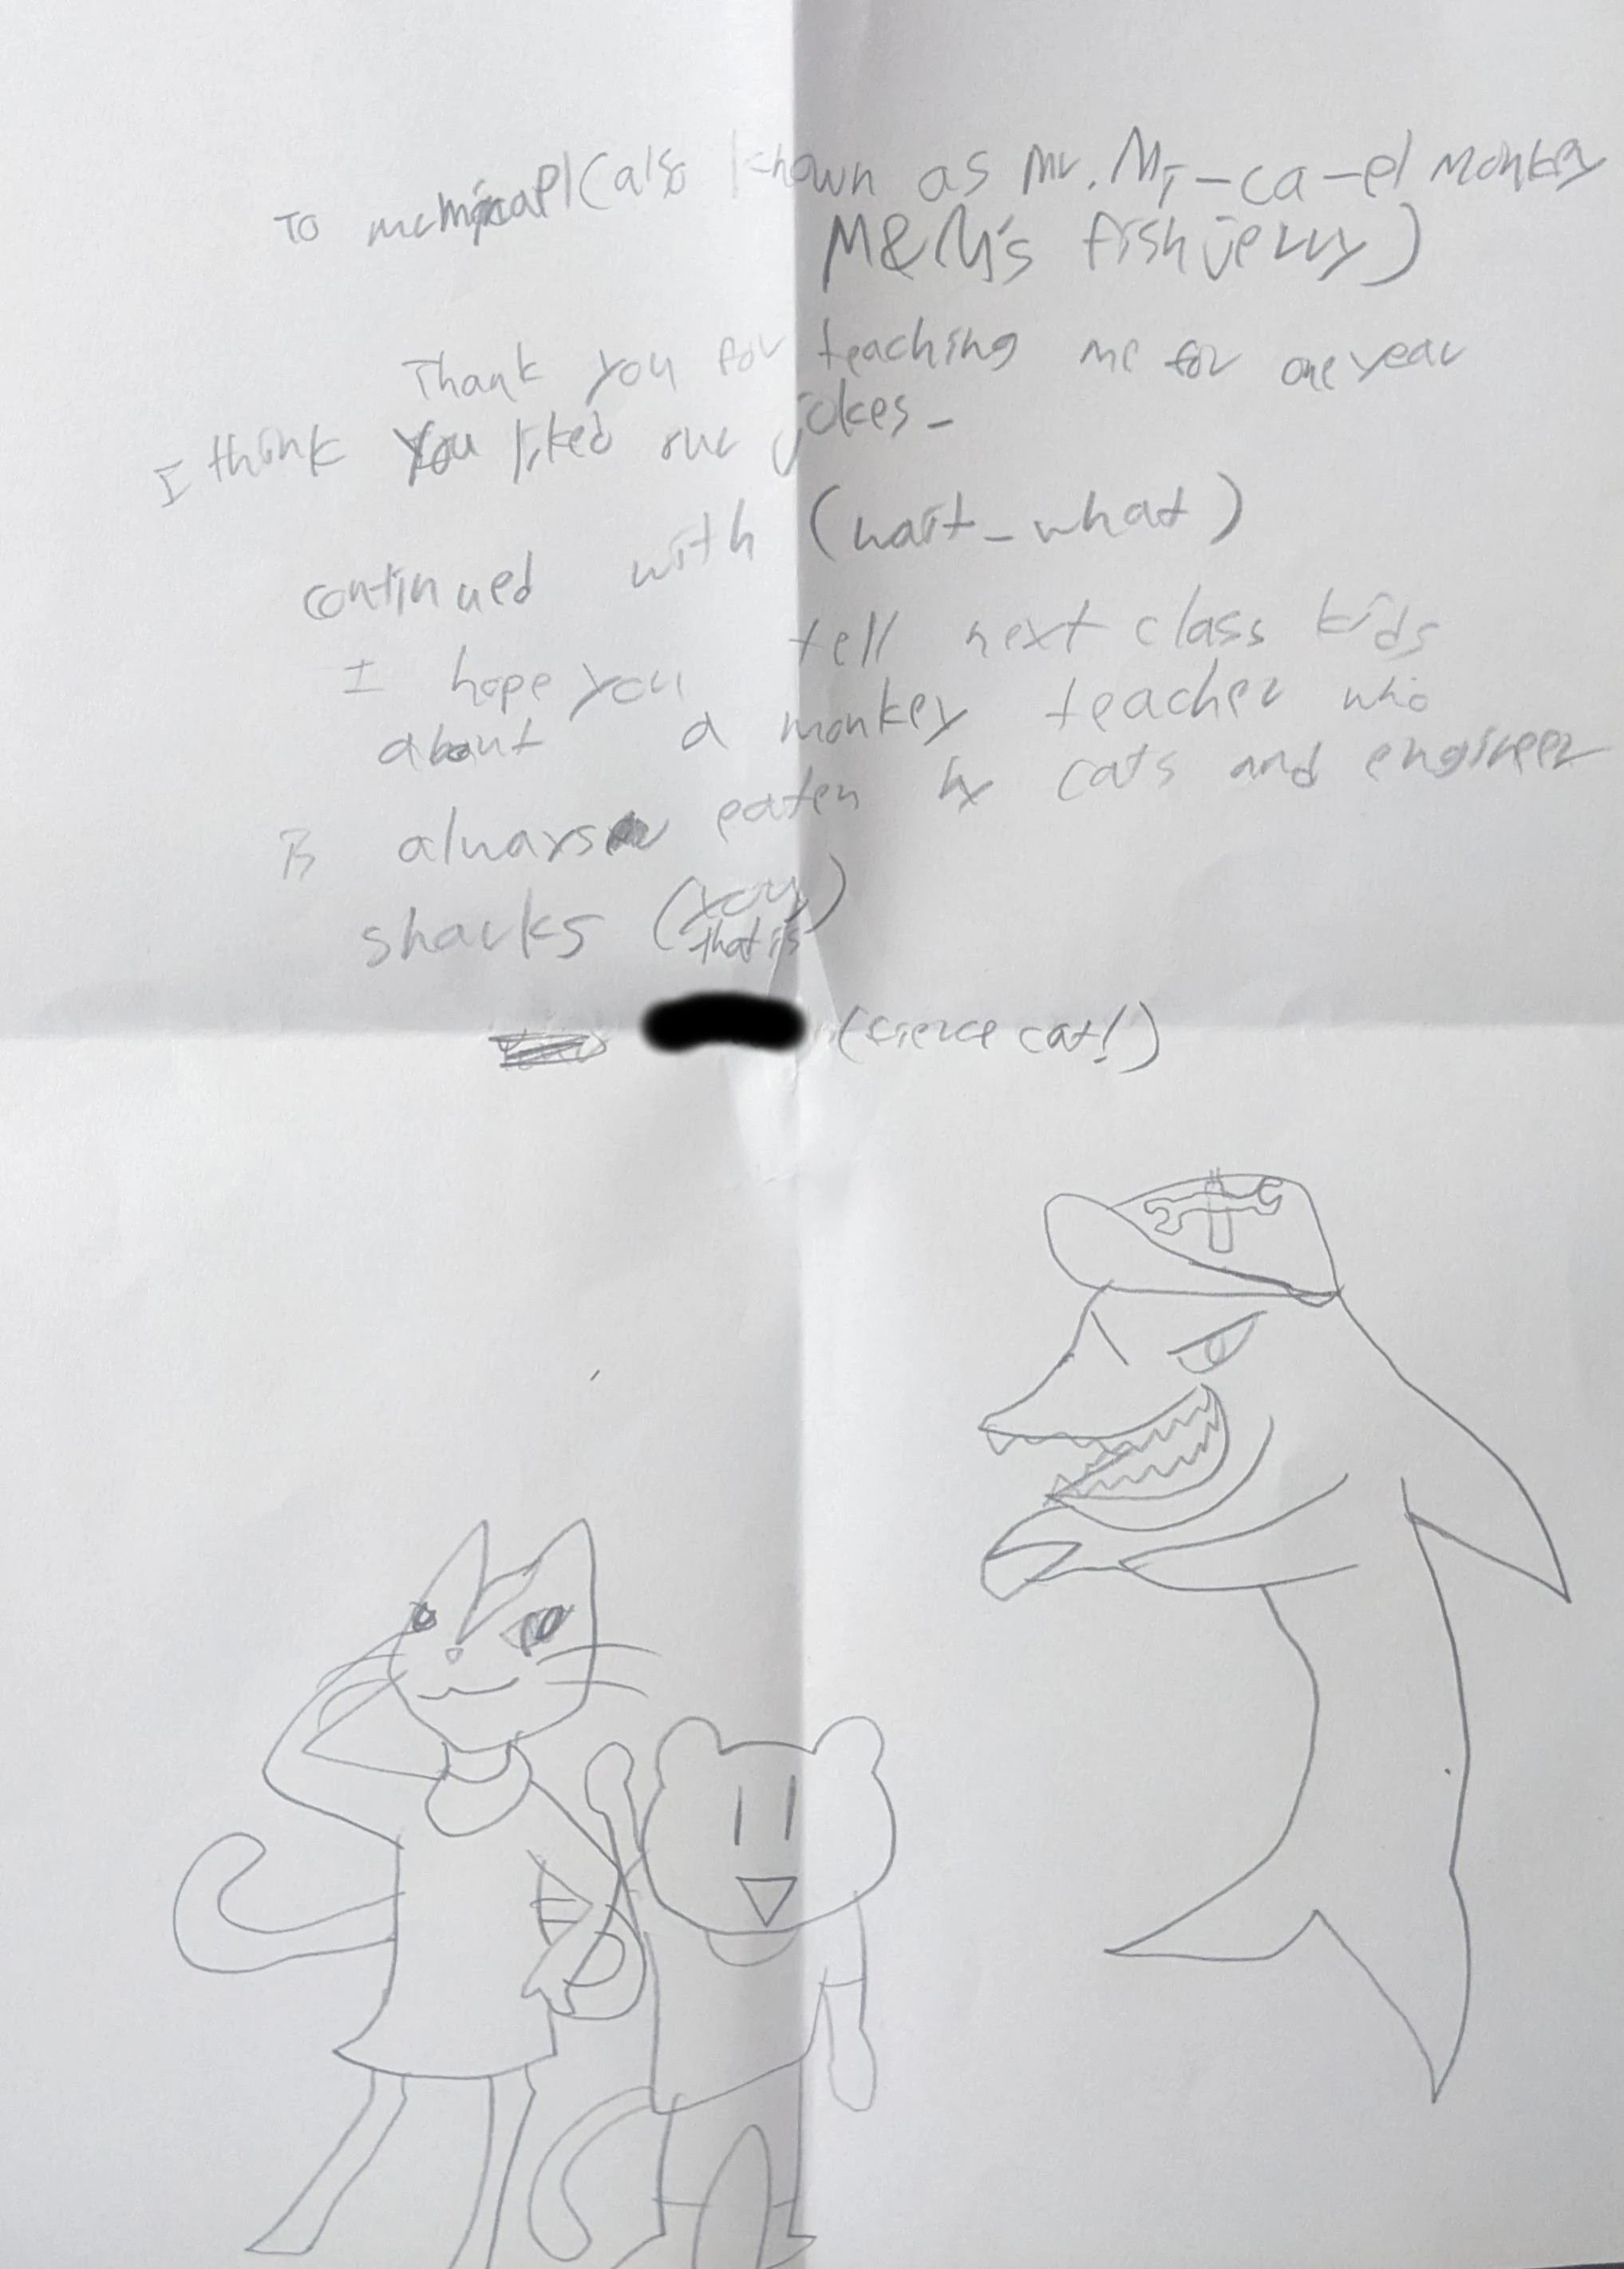 To mr micael (also known as Mr. Mi-ca-el Monkey
M&M's fish jerry)
Thank you for teaching me for one year
I think you liked our jokes-
continued with (wait-what)
I hope you tell next class kids
about a monkey teacher who
is always eaten by cats and engineer
sharks (you
that is)
(fierce cat!)